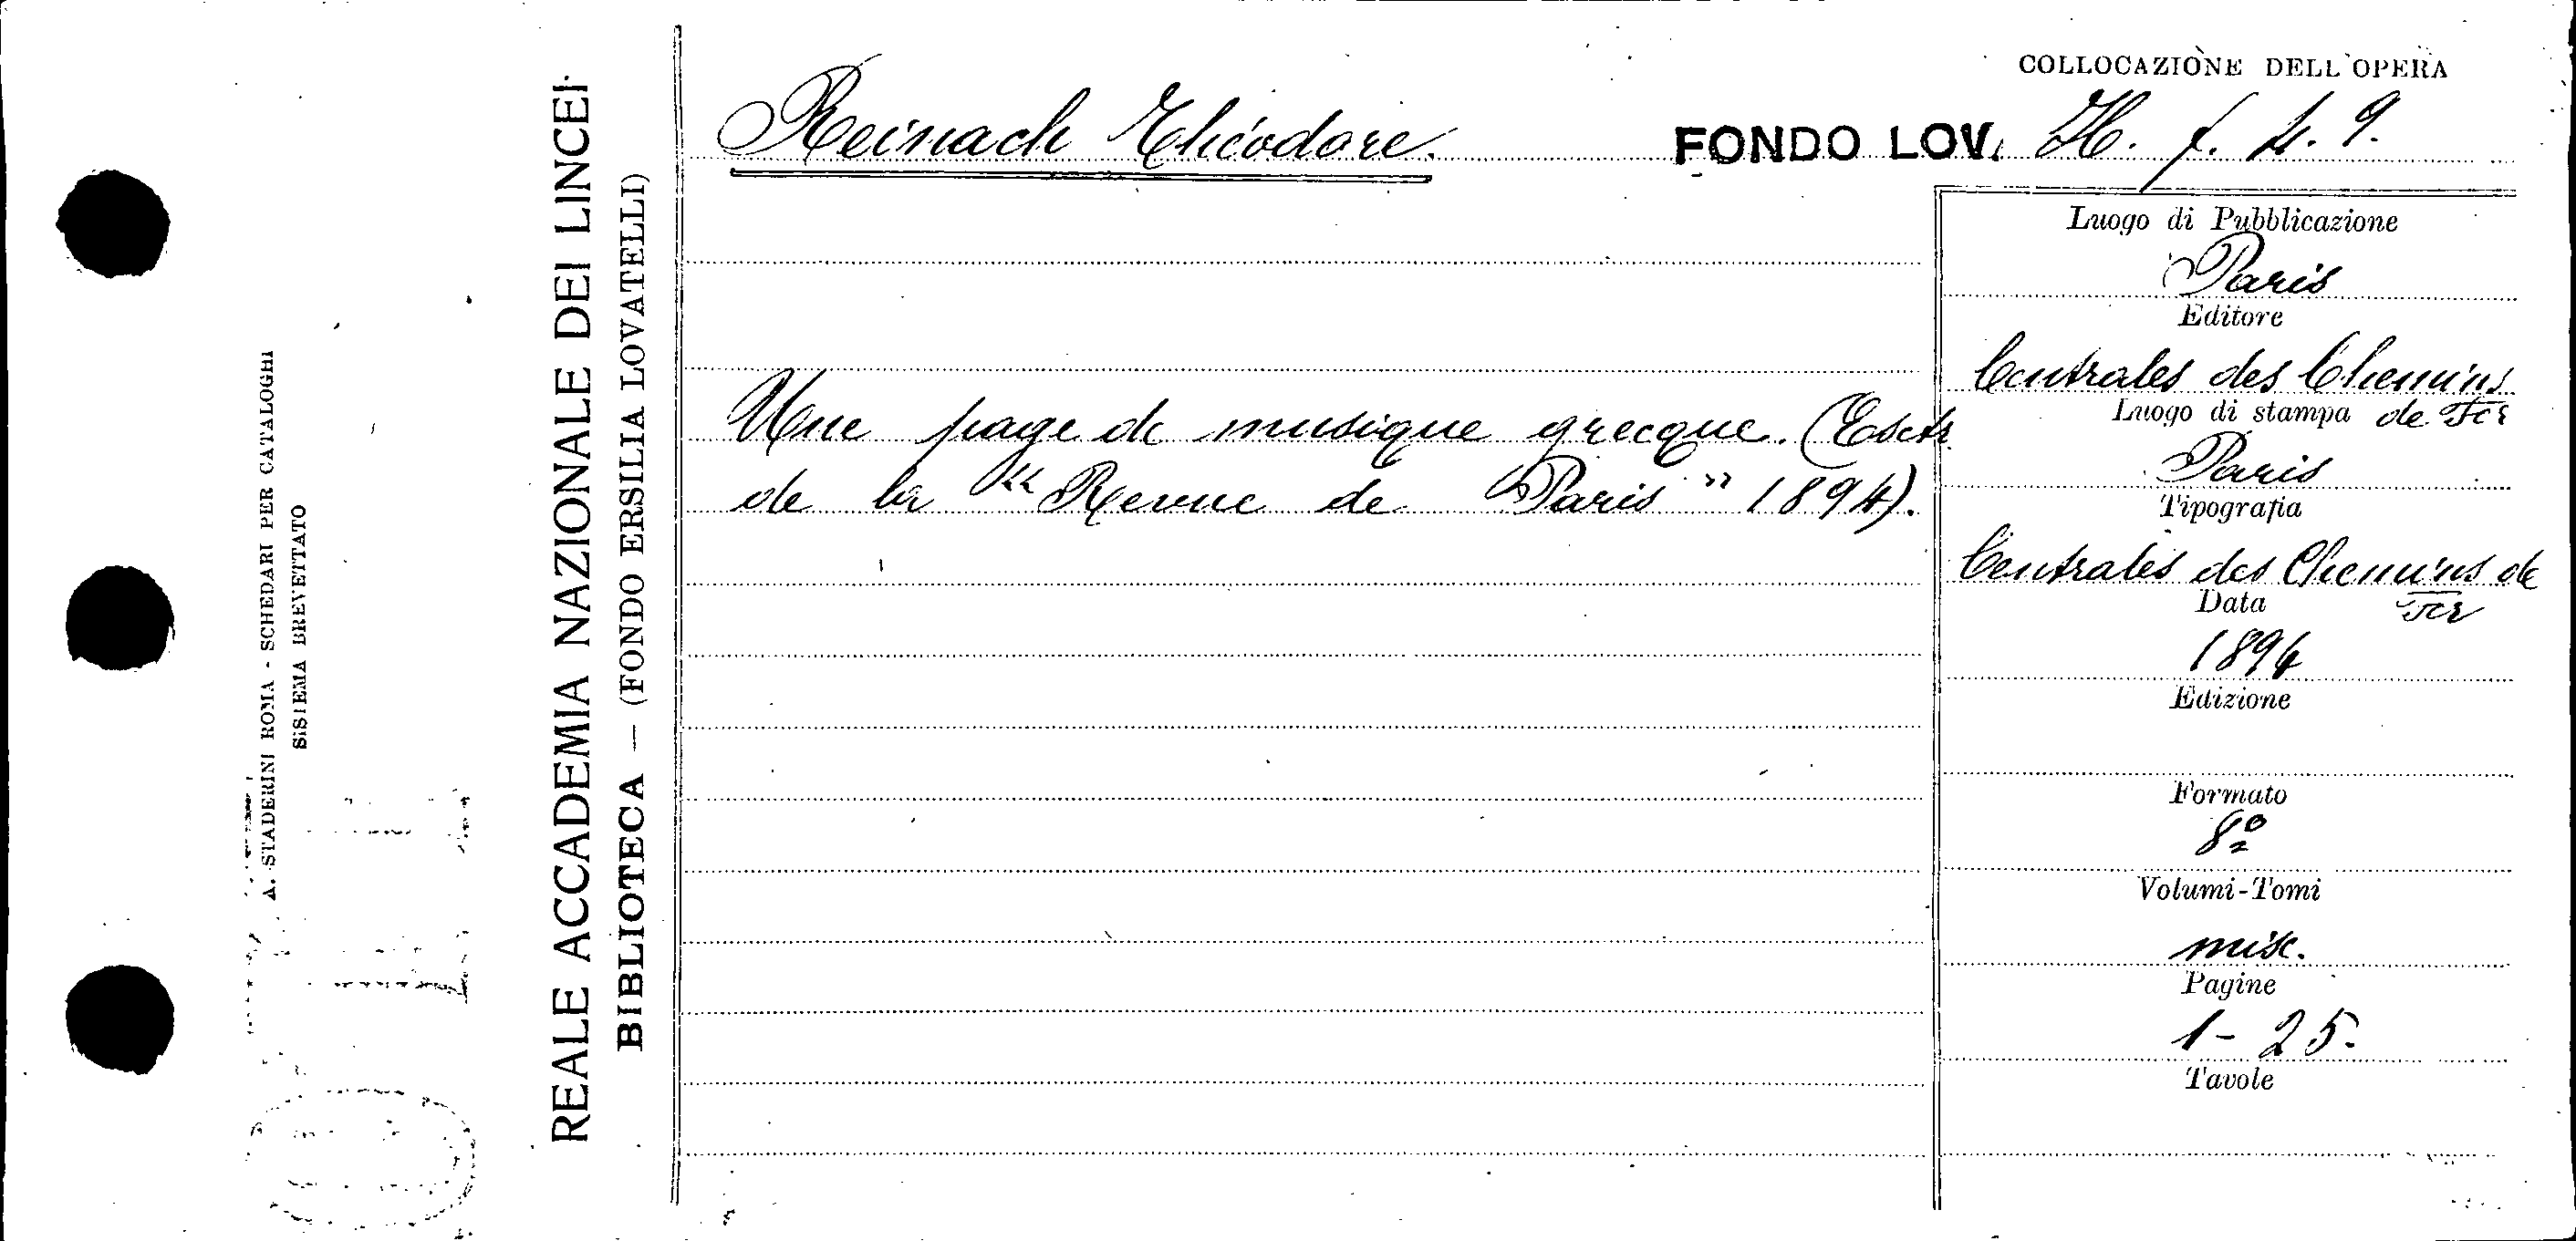 A. STADERINI ROMA - SCHEDARI PER CATALOGHI
SISTEMA BREVETTATO
REALE ACCADEMIA NAZIONALE DEI LINCEI
BIBLIOTECA — (FONDO ERSILIA LOVATELLI)
COLLOCAZIONE DELL'OPERA
Reinach Théodore.
FONDO LOV. H. f. 4. 9.
Une page de musique grecque. (Estr.
de la “Revue de Paris” 1894).
Luogo di Pubblicazione
Paris
Editore
Centrales des Chemins
de Fer
Luogo di stampa
Paris
Tipografia
Centrales des Chemins de
Fer
Data
1894
Edizione
Formato
8º
Volumi-Tomi
misc.
Pagine
1-25.
Tavole